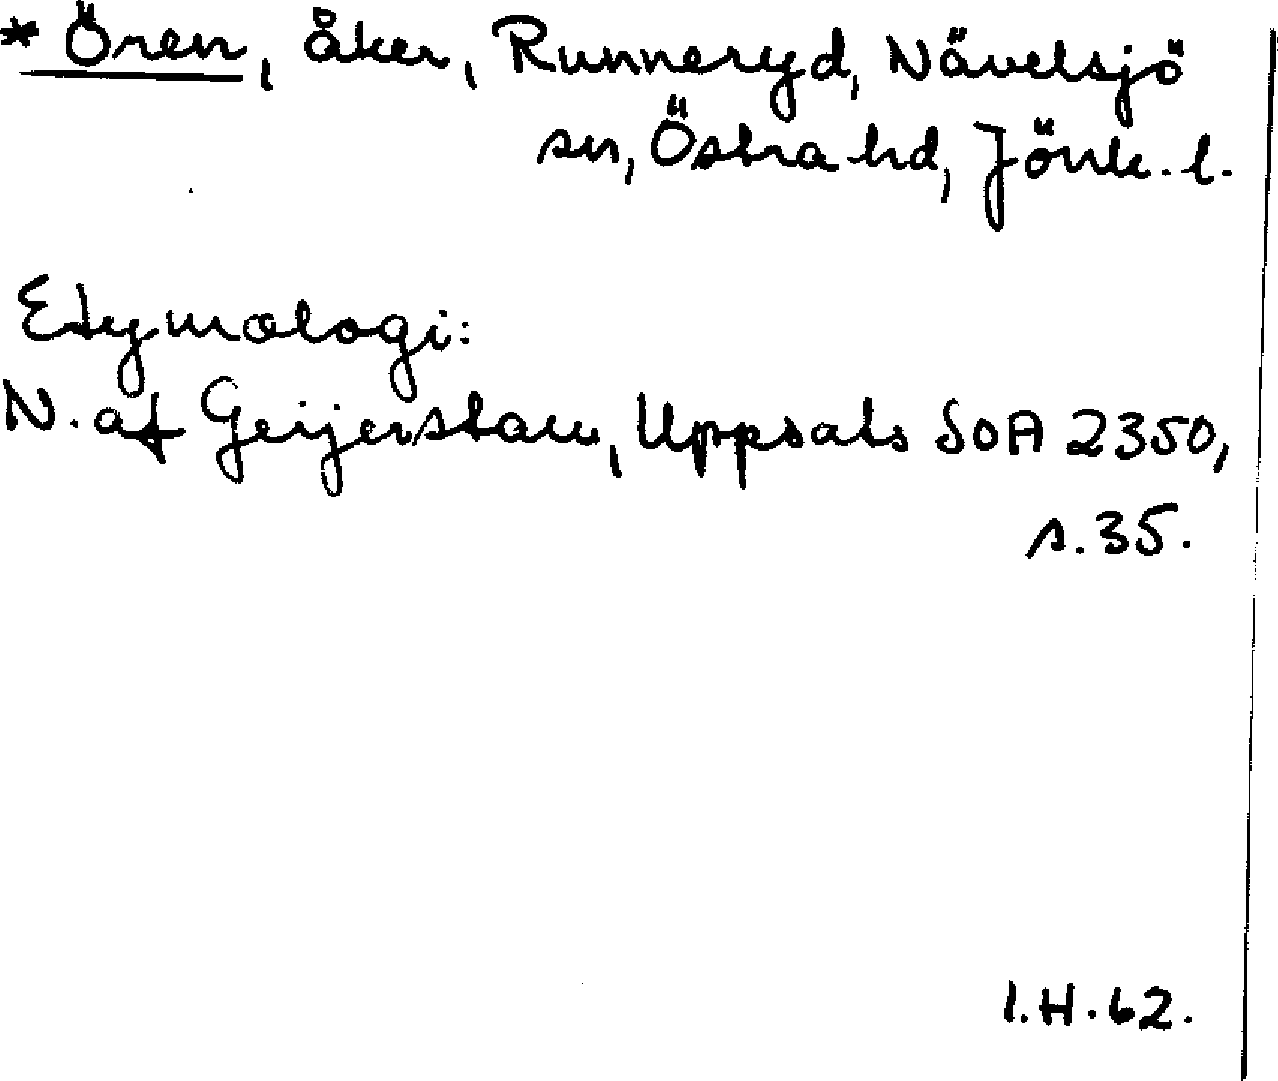 * Ören, åker, Runneryd, Nävelsjö
sn, Östra hd, Jönk. l.
Etymologi:
N. af Geijerstam, Uppsats SOA 2350,
s. 35.
I. H. 62.